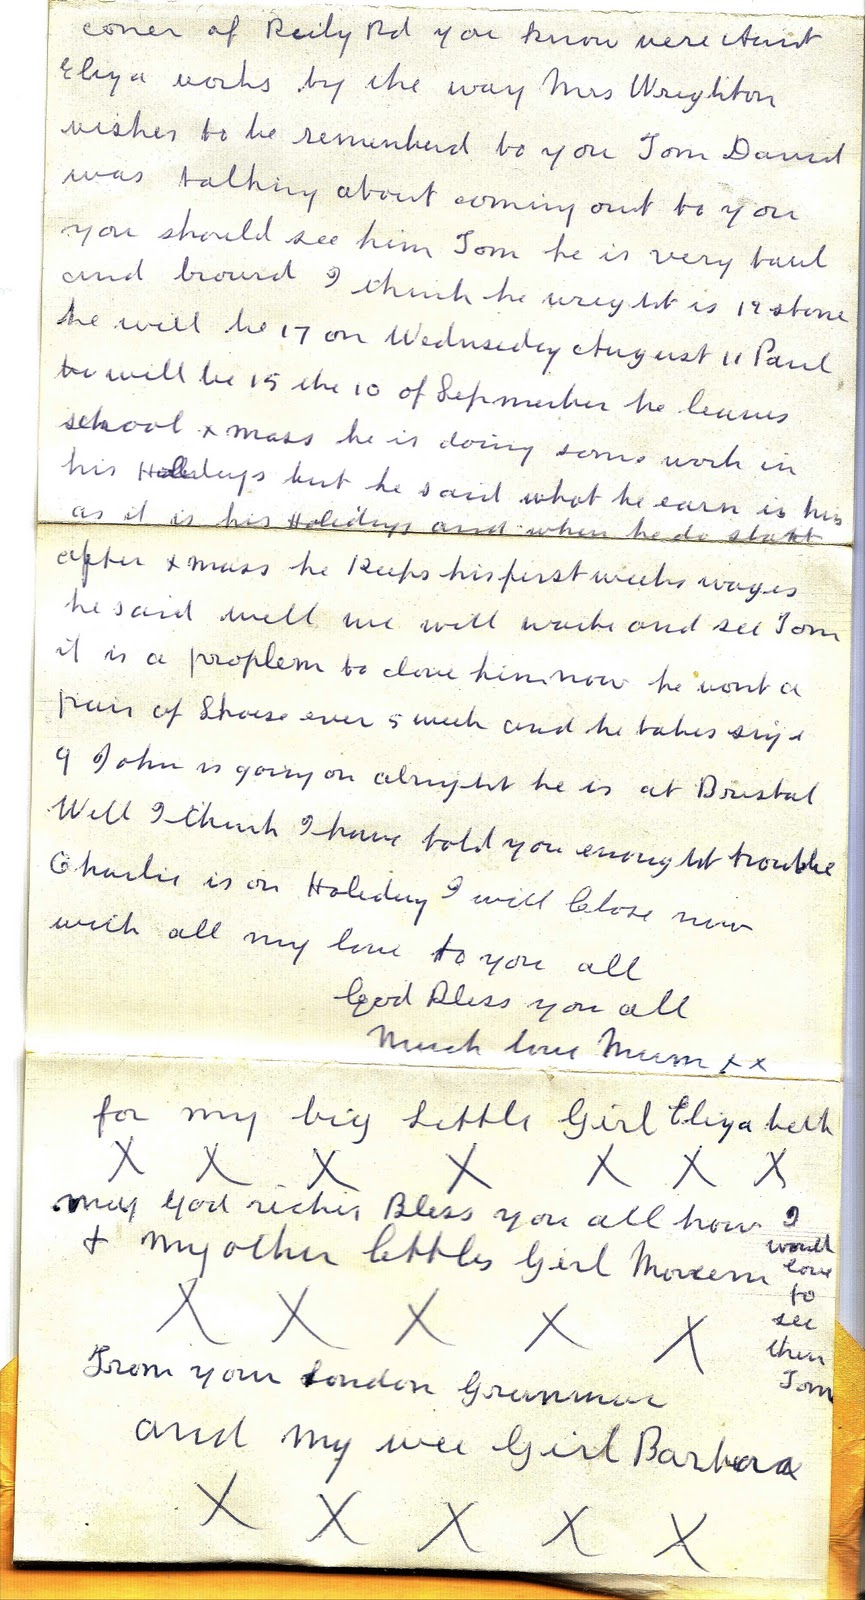 coner of Reily Rd you know were Aunt
Eliza works by the way Mrs Wreghton
wishes to be rememberd to you Tom David
was talking about coming out to you
you should see him Tom he is very taul
and bround I think he wreght is 19 stone
he will be 17 on Wednseday August 11 Paul
he will be 15 the 10 of Sepmember he leaves
school xmass he is doing some work in
his Holidays but he said what he earn is his
as it is his Holidays and when he do start
after xmass he Keeps his first weeks wages
he said well we will waite and see Tom
it is a proplem to clove him now he wont a
pair of Shoese ever 5 week and he takes size
9 John is going on alright he is at Bristal
Well I think I have told you enought trouble
Charlie is on Holiday I will Close now
with all my love to you all
God Bless you all
Much love Mum xx
for my big Little Girl Elizabeth
X X X X X X X
may God riches Bless you all how I
would
love
to
see
them
Tom
+ My other little Girl Moreen
X X X X X
From your London Granmar
and my wee Girl Barbara
X X X X X